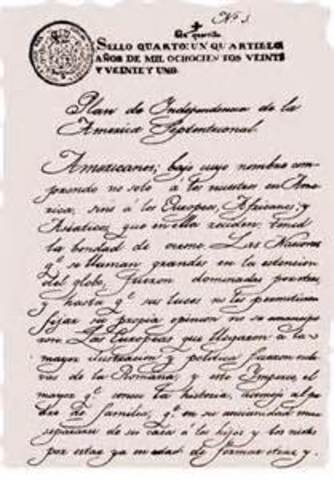 Nº. 3.
Un quartillo
SELLO QUARTO: UN QUARTILLO:
AÑOS DE MIL OCHOCIENTOS VEINTE
Y VEINTE Y UNO.
Plan de Independencia de la
America Septentrional.
Americanos; bajo cuyo nombre com-
prendo no solo á los nacidos en Ame-
rica, sino á los Europeos, Africanos, y
Asiaticos, que en ella residen: tened
la bondad de oirme. Las Naciones
qº se llaman grandes en la extension
del globo, fueron dominadas por otras,
y hasta qº sus luces no les permitieron
fijar su propia opinion no se emancipa
ron. Las Europeas que llegaron á la
mayor ilustracion y politica fueron escla-
vas de la Romana; y este Imperio, el
mayor qº conoce la historia, asemejó al pa-
dre de familias, qº en su ancianidad mira
separarse de su casa á los hijos y los nietos
por estar ya en edad de formar otras, y